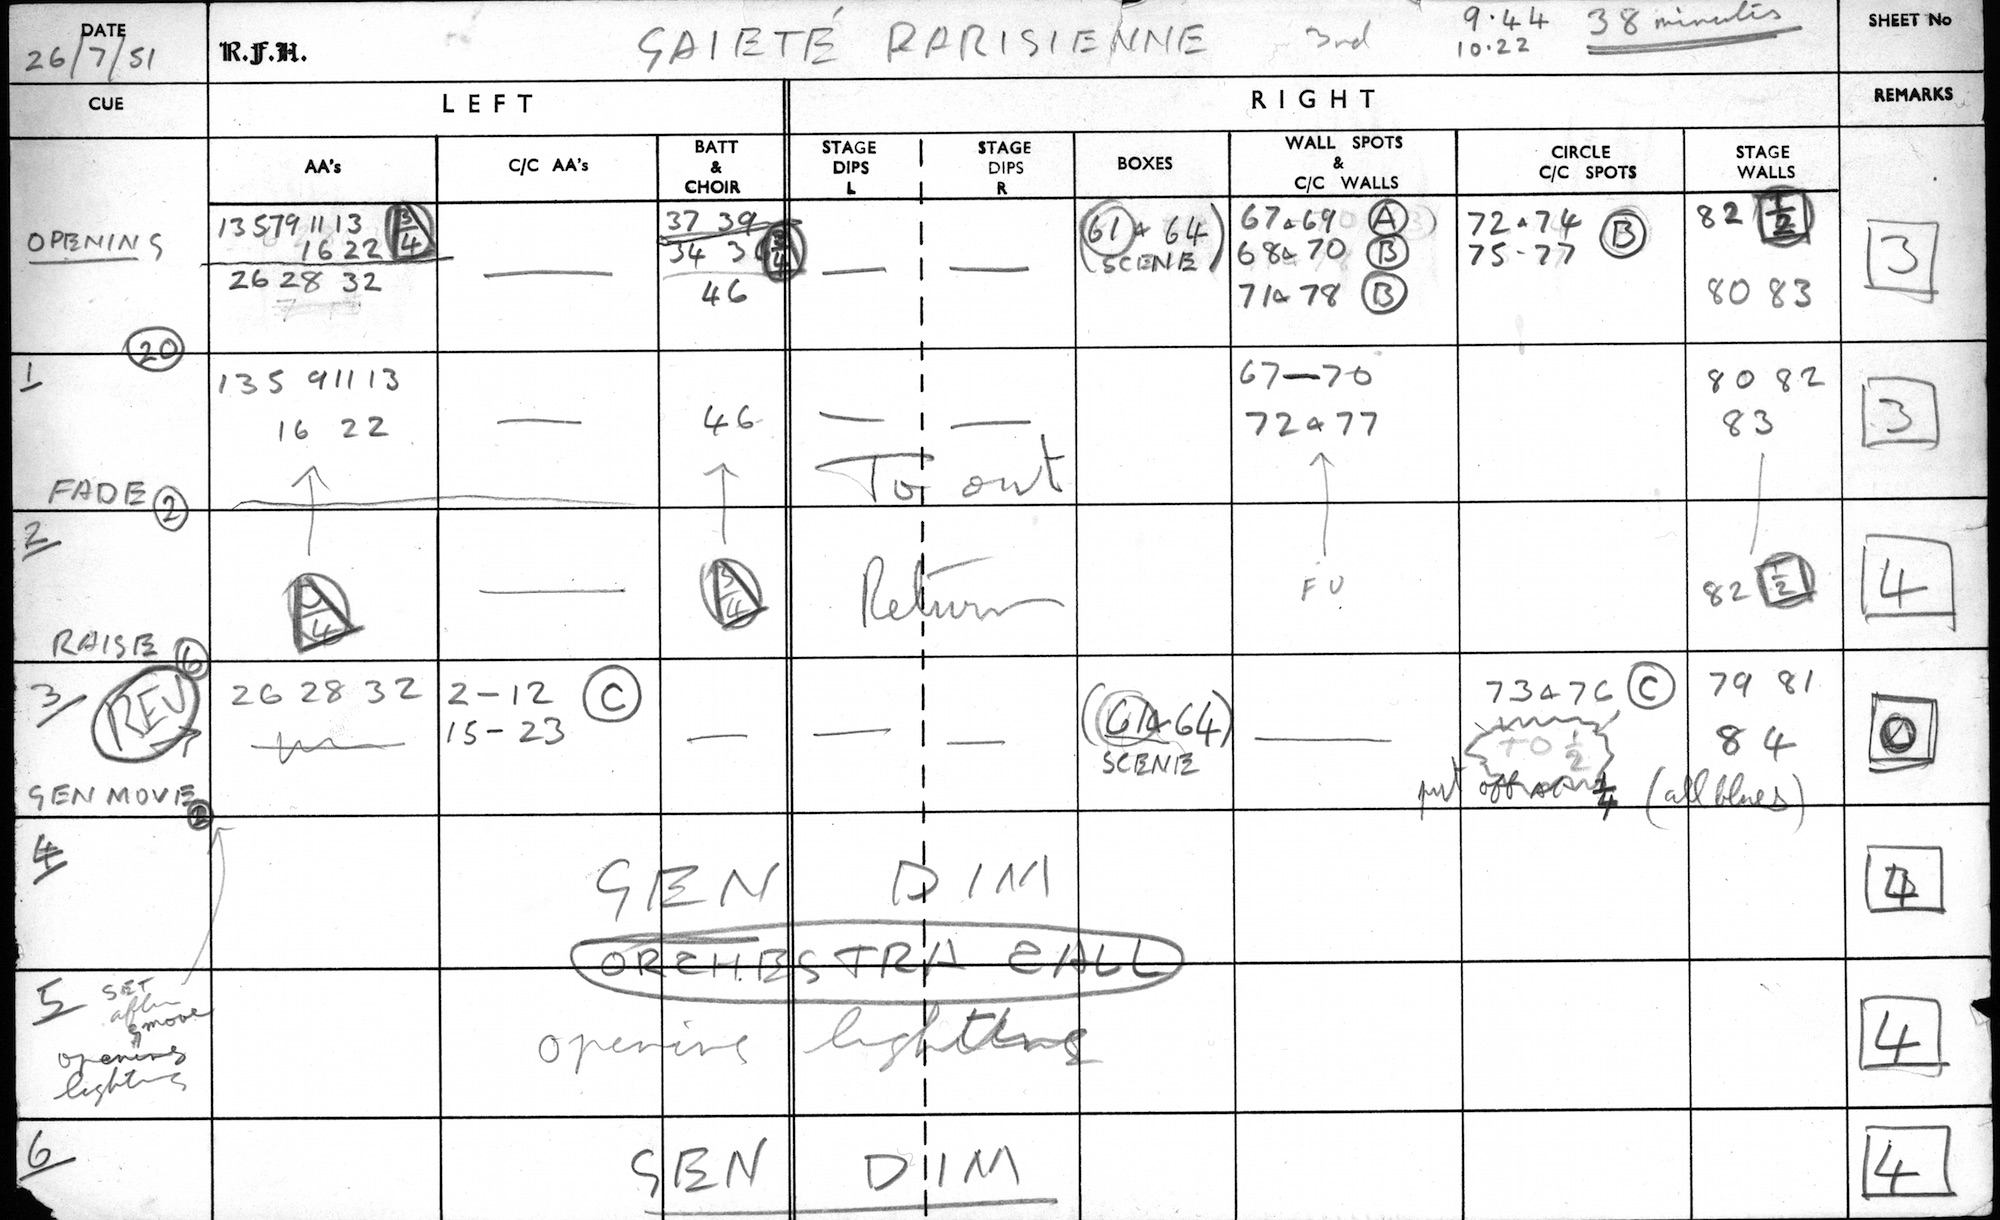 DATE
26/7/51
R.F.H.
GAIETÉ PARISIENNE 3rd
9·44
10·22
38 minutes
SHEET No
CUE
LEFT
RIGHT
REMARKS
AA's
C/C AA's
BATT
&
CHOIR
STAGE
DIPS
L
STAGE
DIPS
R
BOXES
WALL SPOTS
&
C/C WALLS
CIRCLE
C/C SPOTS
STAGE
WALLS
OPENING
13579 11 13
16 22
3/4
26 28 32
—
37 39
34
3/4
46
—
—
(61 & 64)
SCENE
67 & 69 A
68 & 70 B
71 & 78 B
72 & 74
75-77
B
82 1/2
80 83
3
20
1
135 9 11 13
16 22
—
46
—
—
67—70
72 & 77
80 82
83
3
FADE 2
To out
2
3/4
—
3/4
Return
FU
82 1/2
4
RAISE 6
3
REV
26 28 32
2-12
15-23
C
—
—
—
(61 & 64)
SCENE
—
73 & 76 C
TO 1/2
put off 1/4 (all blues)
79 81
84
0
GEN MOVE 2
4
GEN DIM
4
ORCHESTRA CALL
5
SET
after
move
opening
lighting
opening lighting
4
6
GEN DIM
4